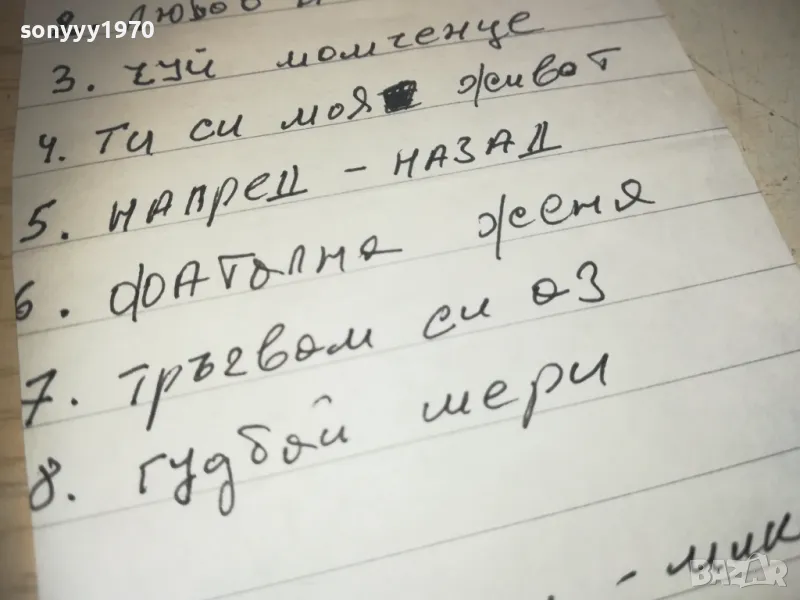 sonyyy1970
3. чуй момченце
4. ти си моя живот
5. напред - назад
6. фатална жена
7. тръгвам си аз
8. гудбай мери
BAZAR